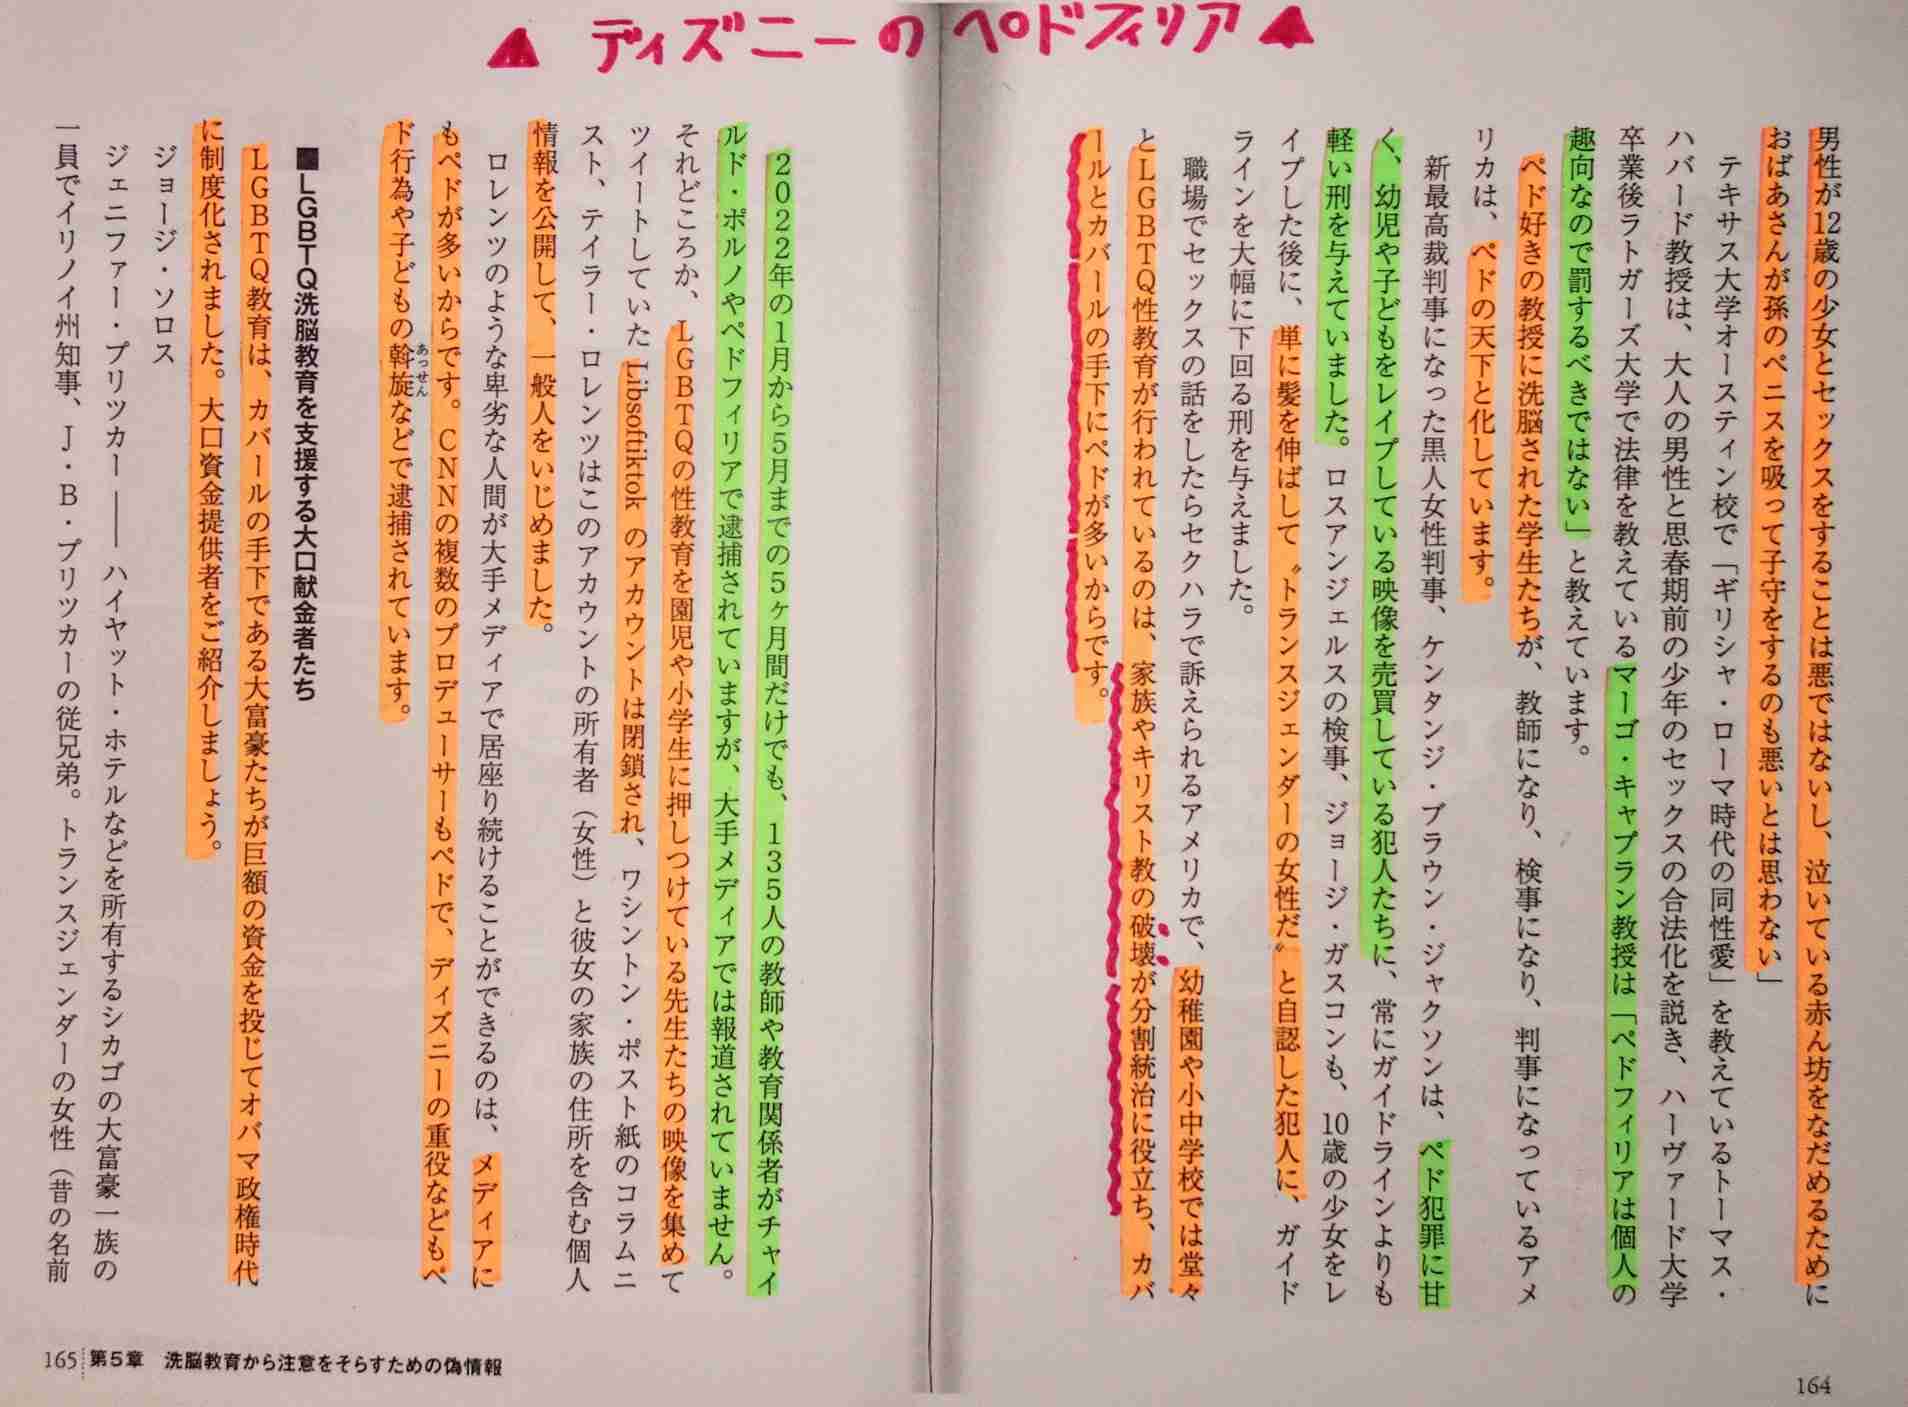 ▲ ディズニーのペドフィリア ▲
男性が12歳の少女とセックスをすることは悪ではないし、泣いている赤ん坊をなだめるために
おばあさんが孫のペニスを吸って子守をするのも悪いとは思わない」
テキサス大学オースティン校で「ギリシャ・ローマ時代の同性愛」を教えているトーマス・
ハバード教授は、大人の男性と思春期前の少年のセックスの合法化を説き、ハーヴァード大学
卒業後ラトガーズ大学で法律を教えているマーゴ・キャプラン教授は「ペドフィリアは個人の
趣向なので罰するべきではない」と教えています。
ペド好きの教授に洗脳された学生たちが、教師になり、検事になり、判事になっているアメ
リカは、ペドの天下と化しています。
新最高裁判事になった黒人女性判事、ケンタンジ・ブラウン・ジャクソンは、ペド犯罪に甘
く、幼児や子どもをレイプしている映像を売買している犯人たちに、常にガイドラインよりも
軽い刑を与えていました。ロスアンジェルスの検事、ジョージ・ガスコンも、10歳の少女をレ
イプした後に、単に髪を伸ばして〝トランスジェンダーの女性だ〟と自認した犯人に、ガイド
ラインを大幅に下回る刑を与えました。
職場でセックスの話をしたらセクハラで訴えられるアメリカで、幼稚園や小中学校では堂々
とLGBTQ性教育が行われているのは、家族やキリスト教の破壊が分割統治に役立ち、カバ
ールとカバールの手下にペドが多いからです。
164
2022年の1月から5月までの5ヶ月間だけでも、135人の教師や教育関係者がチャイ
ルド・ポルノやペドフィリアで逮捕されていますが、大手メディアでは報道されていません。
それどころか、LGBTQの性教育を園児や小学生に押しつけている先生たちの映像を集めて
ツイートしていた Libsoftiktok のアカウントは閉鎖され、ワシントン・ポスト紙のコラムニ
スト、テイラー・ロレンツはこのアカウントの所有者（女性）と彼女の家族の住所を含む個人
情報を公開して、一般人をいじめました。
ロレンツのような卑劣な人間が大手メディアで居座り続けることができるのは、メディアに
もペドが多いからです。CNNの複数のプロデューサーもペドで、ディズニーの重役などもペ
ド行為や子どもの斡旋などで逮捕されています。
あっせん
■LGBTQ洗脳教育を支援する大口献金者たち
LGBTQ教育は、カバールの手下である大富豪たちが巨額の資金を投じてオバマ政権時代
に制度化されました。大口資金提供者をご紹介しましょう。
ジョージ・ソロス
ジェニファー・プリツカー――ハイヤット・ホテルなどを所有するシカゴの大富豪一族の
一員でイリノイ州知事、J・B・プリツカーの従兄弟。トランスジェンダーの女性（昔の名前
165 第5章 洗脳教育から注意をそらすための偽情報